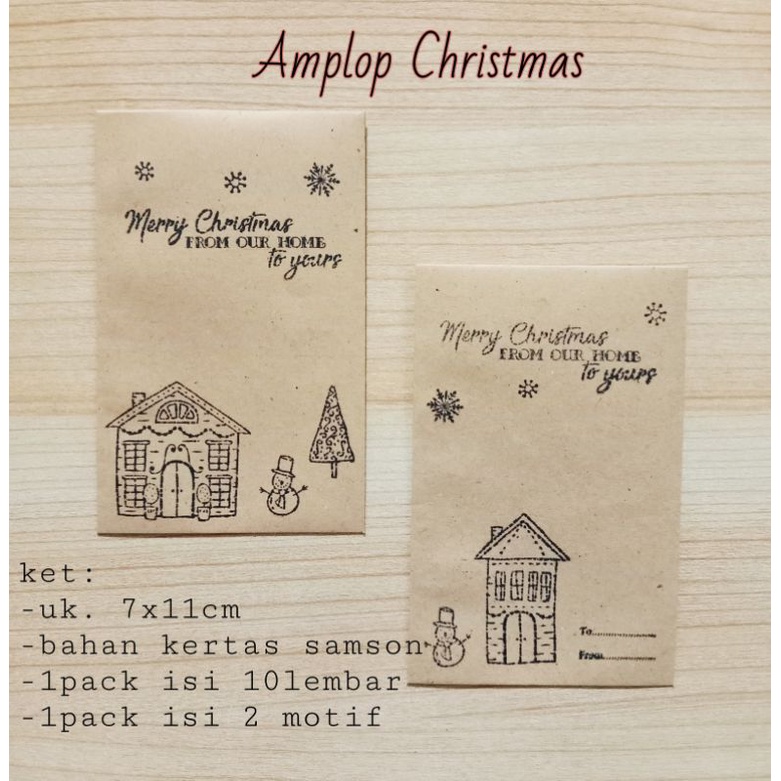 Amplop Christmas
Merry Christmas
FROM OUR HOME
to yours
Merry Christmas
FROM OUR HOME
to yours
To
From
ket:
-uk. 7x11cm
-bahan kertas samson
-1pack isi 10lembar
-1pack isi 2 motif